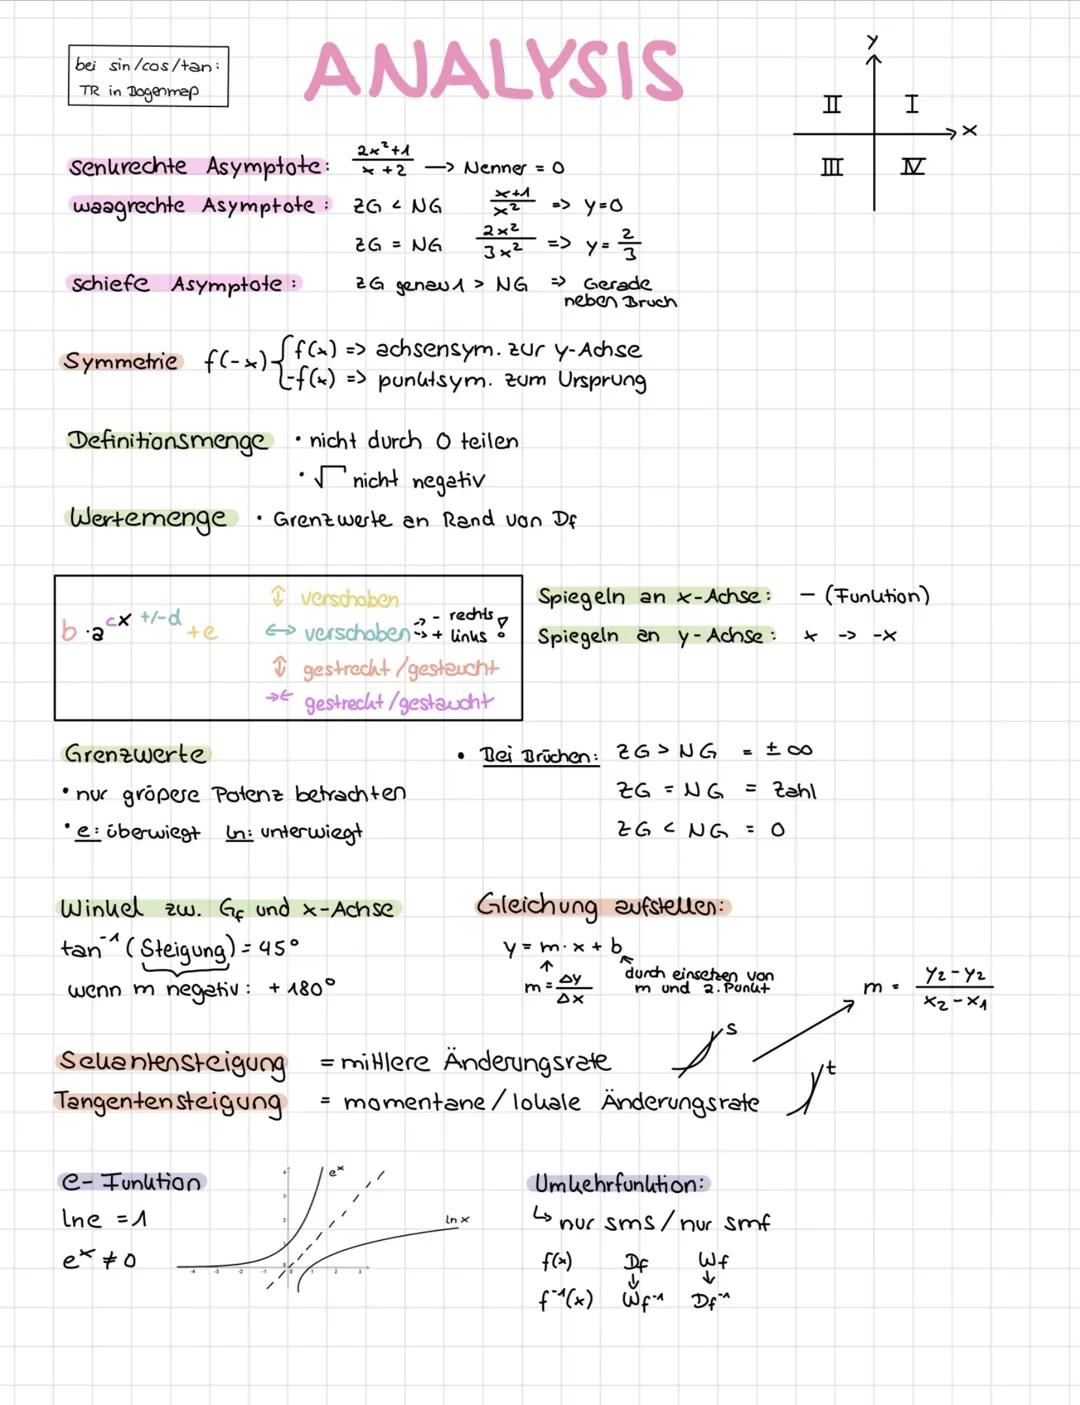 bei sin/cos/tan:
TR in Bogenmaß
ANALYSIS
y
x
II I
III IV
senkrechte Asymptote: 2x²+1 / x+2 → Nenner = 0
waagrechte Asymptote: ZG < NG x+1 / x² => y=0
ZG = NG 2x² / 3x² => y = 2/3
schiefe Asymptote: ZG genau 1 > NG => Gerade
neben Bruch
Symmetrie f(-x) { f(x) => achsensym. zur y-Achse
-f(x) => punktsym. zum Ursprung
Definitionsmenge • nicht durch 0 teilen
• √ nicht negativ
Wertemenge • Grenzwerte an Rand von Df
b·a^(cx +/-d) +e
↕ verschoben
↔ verschoben → - rechts
→ + links !
↕ gestreckt/gestaucht
→← gestreckt/gestaucht
Spiegeln an x-Achse: - (Funktion)
Spiegeln an y-Achse: x -> -x
Grenzwerte
• nur größere Potenz betrachten
• e: überwiegt ln: unterwiegt
• Bei Brüchen: ZG > NG = ±∞
ZG = NG = Zahl
ZG < NG = 0
Winkel zw. Gf und x-Achse
tan⁻¹ (Steigung) = 45°
wenn m negativ: +180°
Gleichung aufstellen:
y = m·x + b
m = Δy / Δx
durch einsetzen von
m und 2. Punkt
m = y₂-y₂ / x₂-x₁
Sekantensteigung = mittlere Änderungsrate
s
Tangentensteigung = momentane/lokale Änderungsrate
t
e-Funktion
ln e = 1
eˣ ≠ 0
eˣ
ln x
4
3
2
1
-4 -3 -2 -1 0 1 2 3
Umkehrfunktion:
↳ nur sms/nur smf
f(x) Df Wf
↓ ↓
f⁻¹(x) Wf⁻¹ Df⁻¹